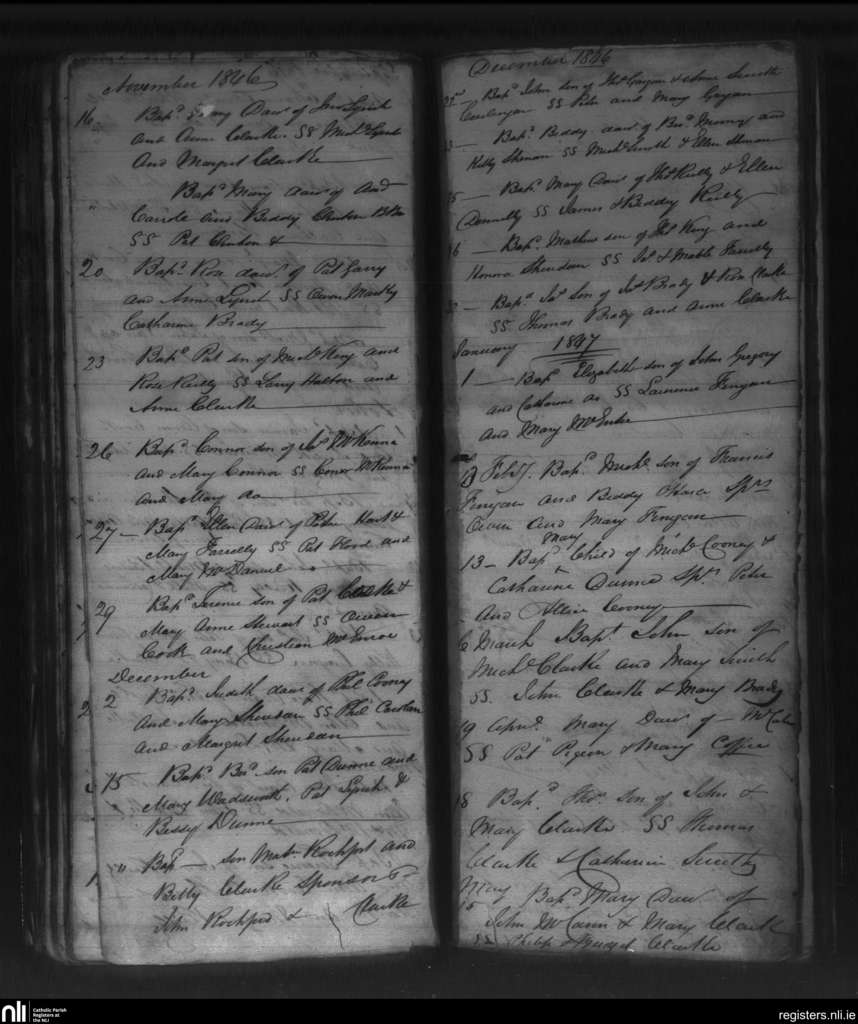 November 1846
16 Bapd daur of Lynch
and Anne Clarke. SS Michl Lynch
And Margret Clarke
" Bapd Mary daur of And
Caride and Biddy Clinton
SS Pat Clinton &
20 Bapd Rose daur of Pat Garry
and Anne Lynch SS Owen
Catharine Brady
23 Bapd Pat son of Michl King and
Rose Reilly SS Larry Halton and
Anne Clarke
26 Bapd Connor son of Jas McKenna
and Mary Connor SS Conor McKenna
and Mary do
27 — Bapd Ellen Daur of Peter Hart &
Mary Farrelly SS Pat and
Mary McDaniel
29 Bapd Terence son of Pat Clarke &
Mary Anne Stewart SS Owen
Cook and Christian
December
2 Bapd Judith daur of Phil Cooney
And Mary Sheridan SS Phil
and Margret Sheridan
15 Bapd Bd son Pat Dunne and
Mary Wadsworth. Pat Lynch &
Bessy Dunne
" Bapd — son Mat Rochfort and
Betty Clarke Sponsors
John Rochford & Clarke
December 1846
Bapd John son of Thos Gargan & Anne Smith
SS Peter and Mary Gargan
— Bapd Biddy daur of Bd Murray and
Kitty SS Michl Smith & Ellen
— Bapd Mary Daur of Thos Reilly & Ellen
Donnelly SS James & Biddy Reilly
— Bapd Mathew son of Thos King and
Honora Sheridan SS Jas & Mable Farrelly
— Bapd Jas Son of Jas Brady & Rose Clarke
SS Thomas Brady and Anne Clarke
January 1847
1 — Bapd Elizabeth son of John Gregory
and Catharine do SS Laurence Finegan
and Mary McEntee
Feby. Bapd Michl son of Francis
Finegan and Biddy O'Hara Sprs
Owen and Mary Finegan
Mary
13 — Bapd Child of Michl Cooney &
Catharine Dunne Sprs Peter
And Alice Cooney
6 March Bapt John son of
Michl Clarke and Mary Smith
SS. John Clarke & Mary Brady
19 April Mary Daur of —
SS Pat Pigeon & Mary
18 Bapd Thos son of John &
Mary Clarke SS Thomas
Clarke & Catherine Smith
May Bapd Mary Daur of
15 John McCann & Mary Clarke
SS Philip & Bridget Clarke
nli
Catholic Parish
Registers at
the NLI
registers.nli.ie